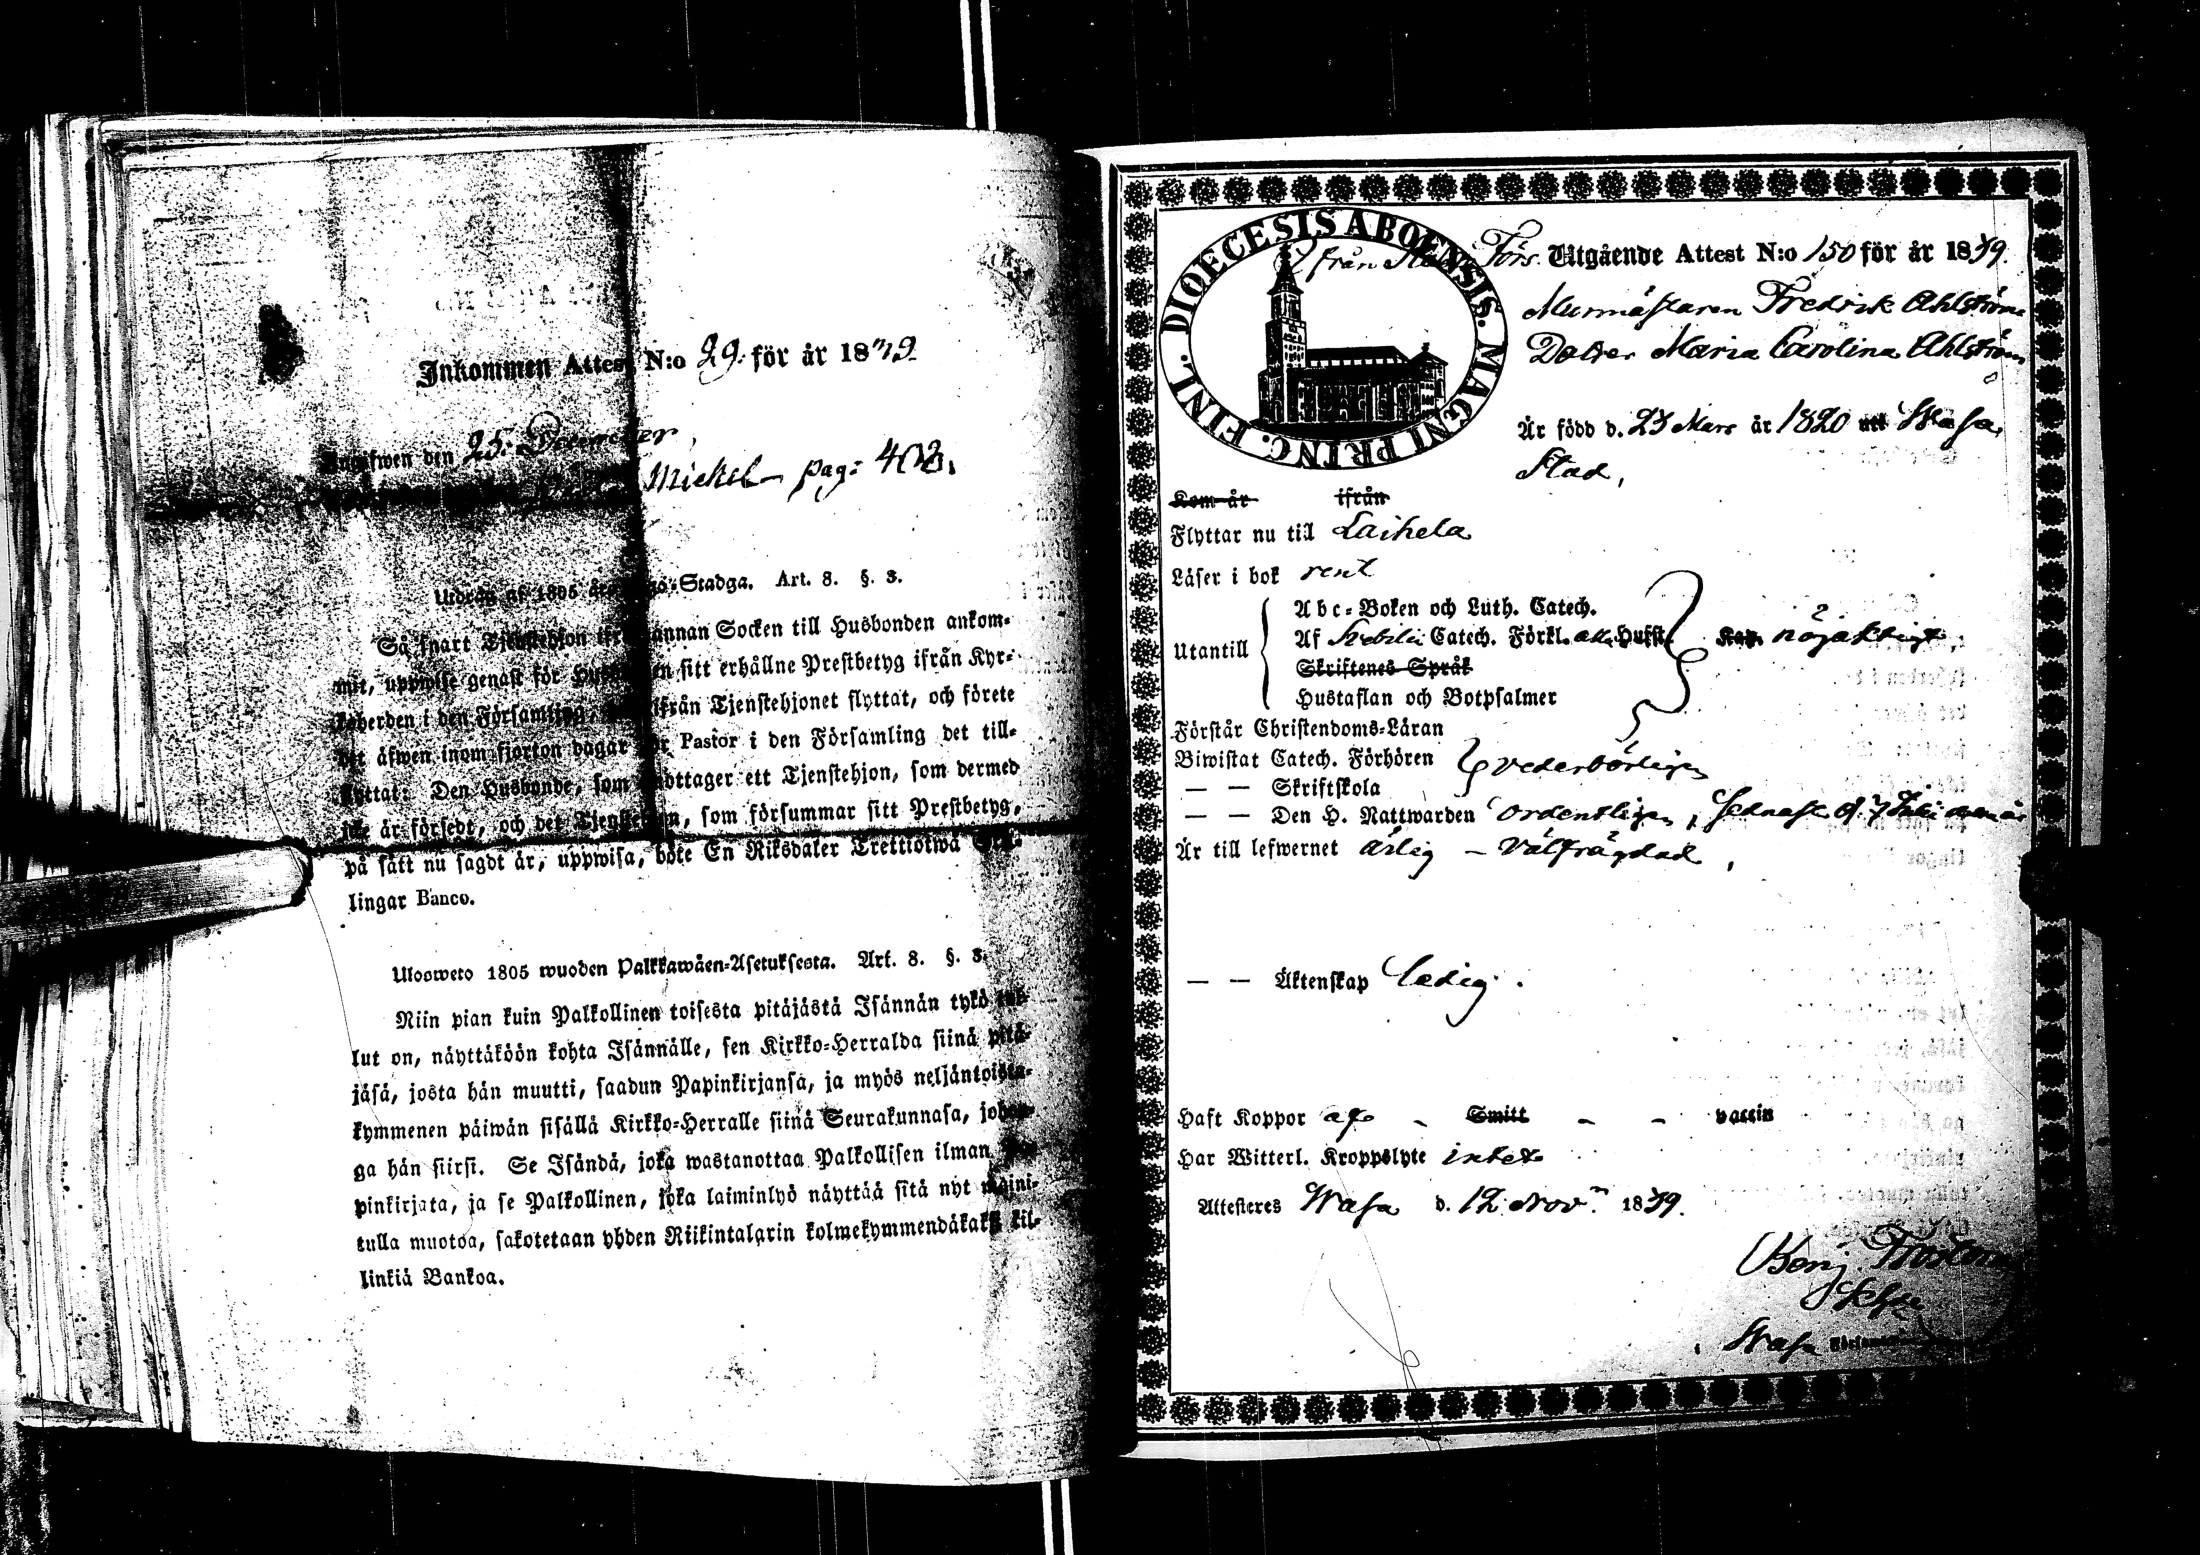 Inkommen Attest N:o 29. för år 18
Angifwen den 25. December
Mickel pag:
Utdrag af 1805 års Stadga. Art. 8. §. 3.
Så snart Tjenstehjon ifrån annan Socken till Husbonden ankom-
mit, uppwise genast för Husbonden sitt erhållne Prestbetyg ifrån Kyr-
koherden i den Församling, ifrån Tjenstehjonet flyttat, och förete
det äfwen inom fjorton dagar för Pastor i den Församling det till-
flyttat: Den Husbonde, som emottager ett Tjenstehjon, som dermed
icke är försedt, och det Tjenstehjon, som försummar sitt Prestbetyg,
på sätt nu sagdt är, uppwisa, böte En Riksdaler Trettiotwå Skil-
lingar Banco.
Ulosweto 1805 wuoden Palkkawäen-Asetuksesta. Art. 8. §. 3.
Niin pian kuin Palkollinen toisesta pitäjästä Isännän tykö tul-
lut on, näyttäköön kohta Isännälle, sen Kirkko-Herralda siinä pitä-
jäsä, josta hän muutti, saadun Papinkirjansa, ja myös neljäntoista-
kymmenen päiwän sisällä Kirkko-Herralle siinä Seurakunnasa, johon-
ga hän siirsi. Se Isändä, joka wastanottaa Palkollisen ilman Pa-
pinkirjata, ja se Palkollinen, joka laiminlyö näyttää sitä nyt maini-
tulla muotoa, sakotetaan yhden Riikintalarin kolmekymmendäkaksi kil-
linkiä Bankoa.
DIOECESIS ABOENSIS. MAGNI PRINC. FINL.
från Förs. Utgående Attest N:o 150 för år 1839.
Murmästaren Fredrik Ahlströms
Dotter Maria Carolina Ahlström
Är född d. 23 Mars år 1820 uti Wasa
Stad,
Kom år ifrån
Flyttar nu till Laihela
Läser i bok rent
Utantill
Abc-Boken och Luth. Catech.
Af Svebilii Catech. Förkl. alla Hufst. Kap. nöjaktigt
Skriftenes Språk
Hustaflan och Botpsalmer
Förstår Christendoms-Läran
Biwistat Catech. Förhören vederbörligen
— — Skriftskola
— — Den H. Nattwarden ordentligen, sednast d. 7 Juli
Är till lefwernet ärlig – välfrägdad,
— — Äktenskap ledig.
Haft Koppor – Smitt – – vaccin
Har Witterl. Kroppslyte intet
Attesteres Wasa d. 12 Nov. 1839.
Benj.
Wasa